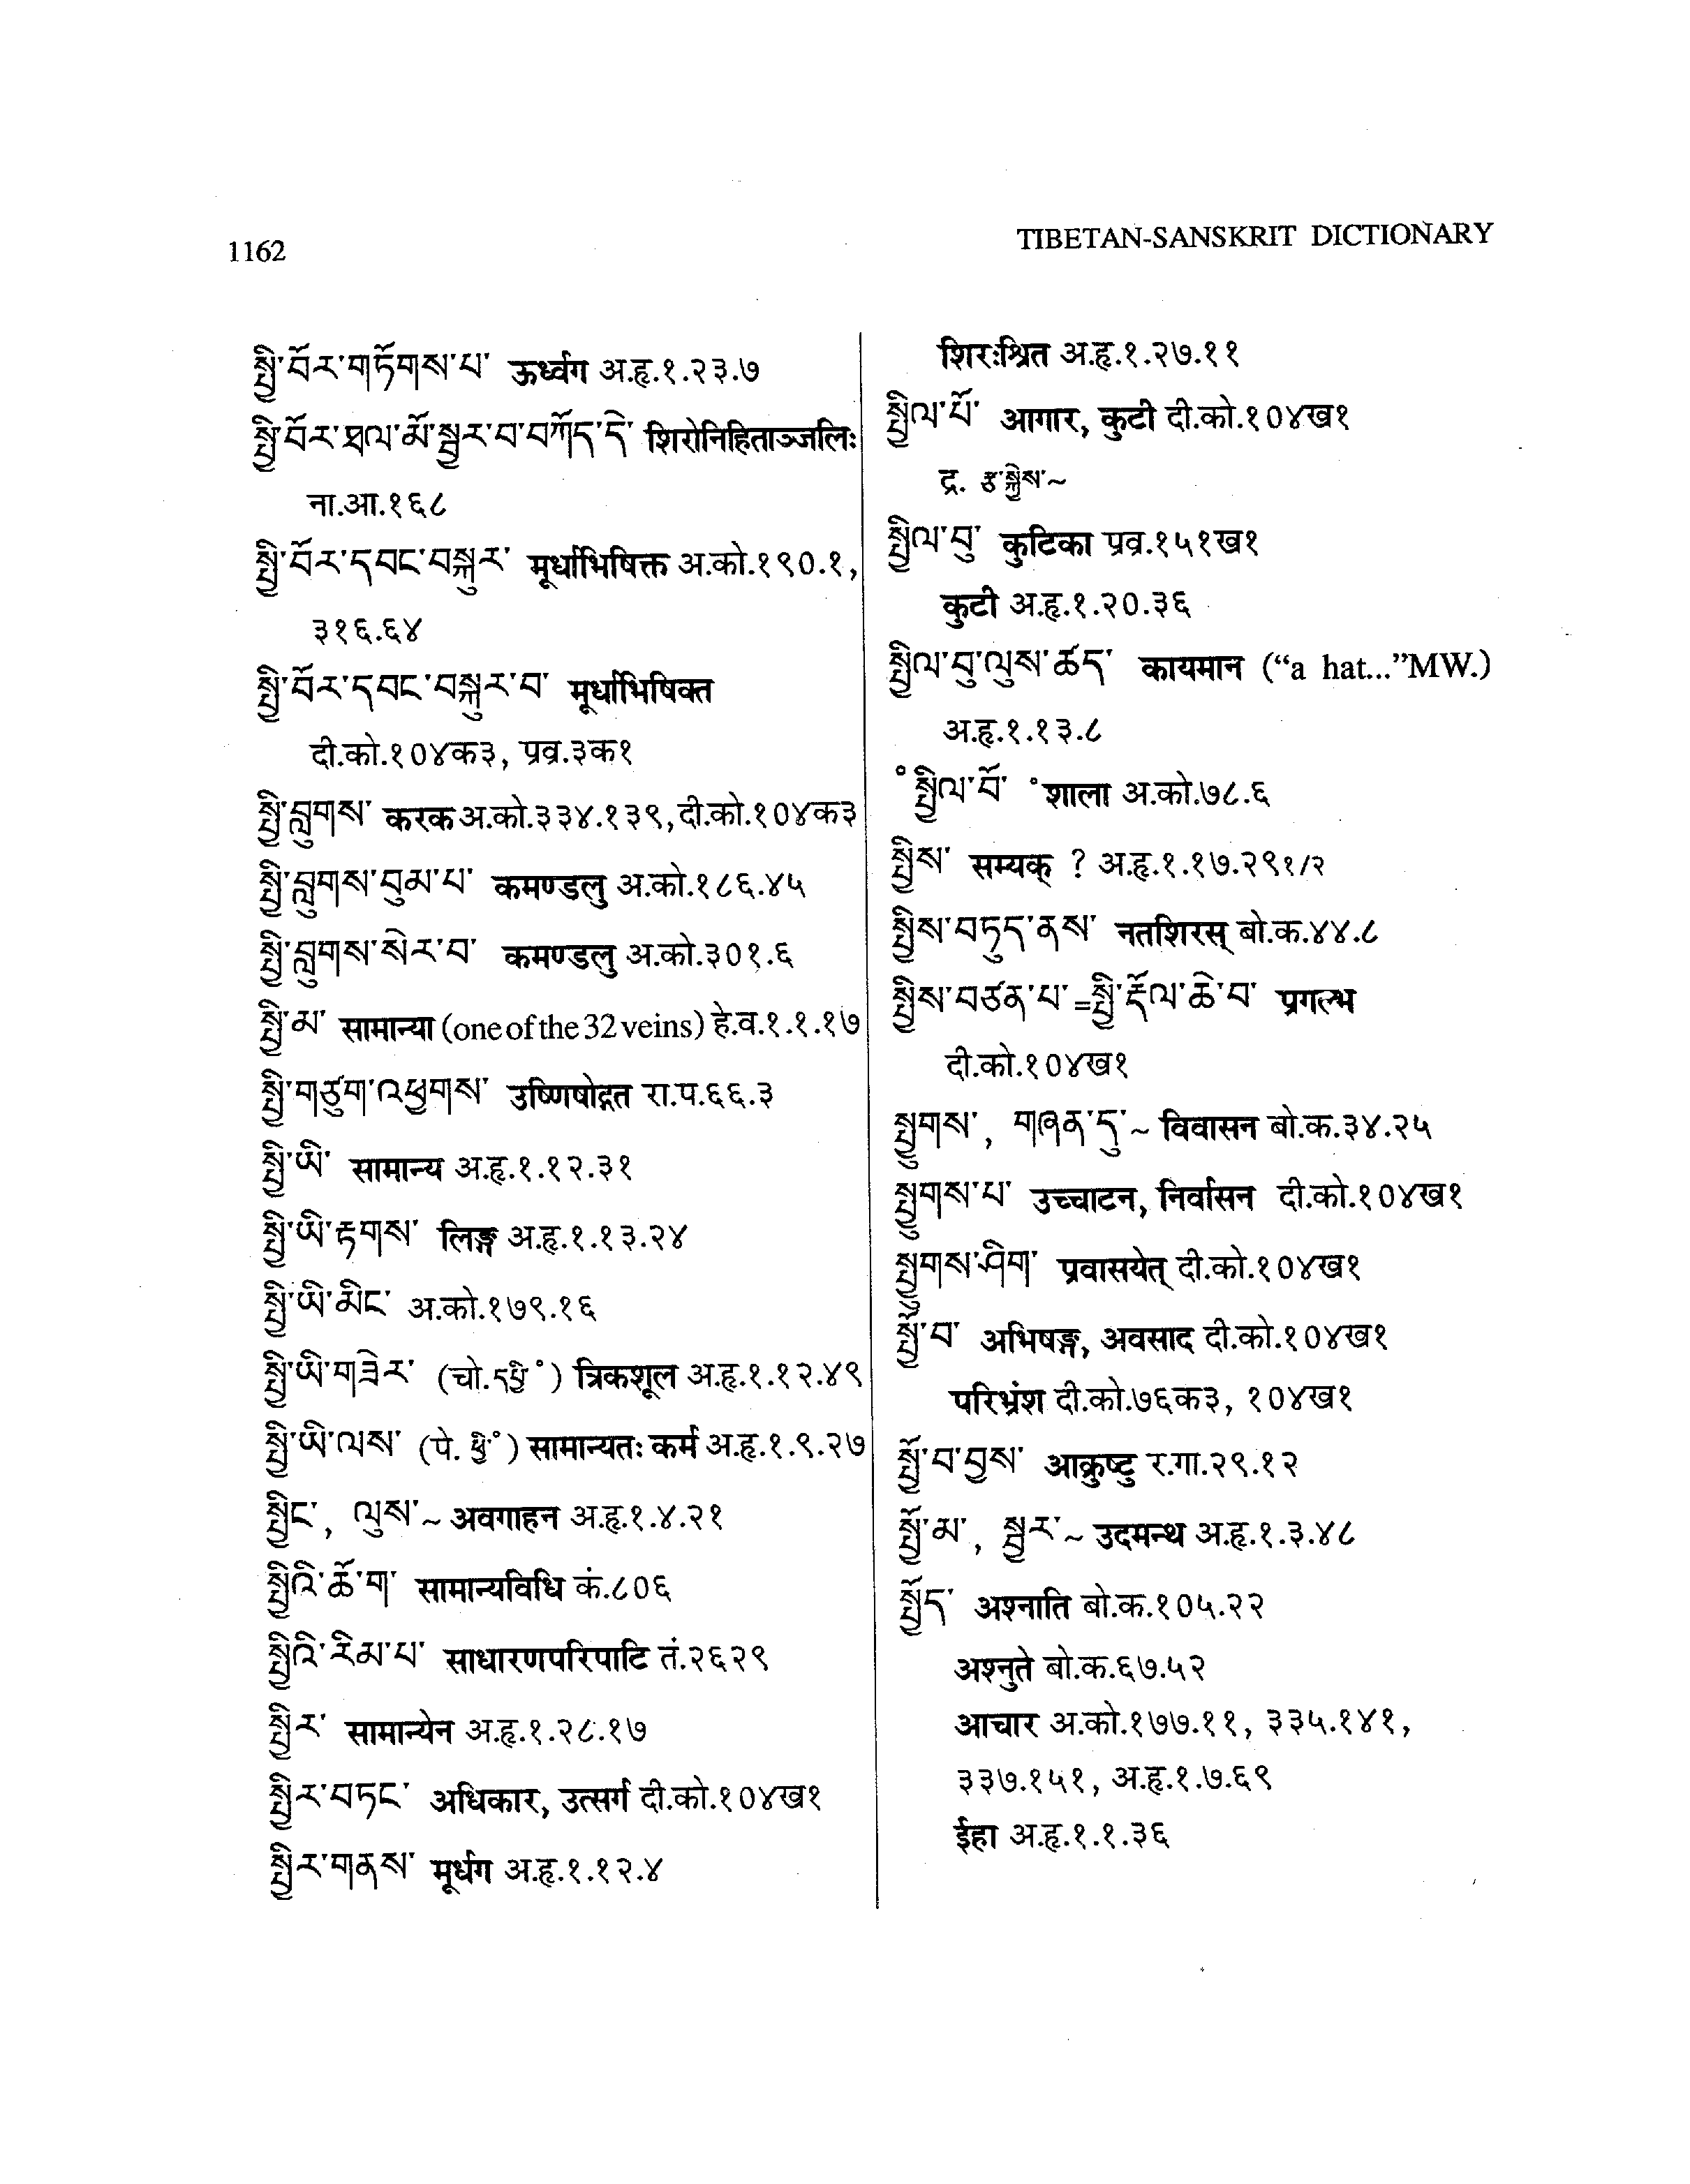 1162
TIBETAN-SANSKRIT DICTIONARY
སྤྱི་བོར་གཏོགས་པ་ ऊर्ध्वग अ.हृ.१.२३.७
སྤྱི་བོར་ཐལ་མོ་སྦྱར་བ་བཀོད་དེ་ शिरोनिहिताञ्जलिः
ना.आ.१६८
སྤྱི་བོར་དབང་བསྐུར་ मूर्धाभिषिक्त अ.को.१९०.१,
३१६.६४
སྤྱི་བོར་དབང་བསྐུར་བ་ मूर्धाभिषिक्त
दी.को.१०४क३, प्रव्र.३क१
སྤྱི་བླུགས་ करक अ.को.३३४.१३९, दी.को.१०४क३
སྤྱི་བླུགས་བུམ་པ་ कमण्डलु अ.को.१८६.४५
སྤྱི་བླུགས་སེར་བ་ कमण्डलु अ.को.३०१.६
སྤྱི་མ་ सामान्या (one of the 32 veins) हे.व.१.१.१७
སྤྱི་གཙུག་འཕྱགས་ उष्णिषोद्गत रा.प.६६.३
སྤྱི་ཡི་ सामान्य अ.हृ.१.१२.३१
སྤྱི་ཡི་རྟགས་ लिङ्ग अ.हृ.१.१३.२४
སྤྱི་ཡི་མིང་ अ.को.१७९.१६
སྤྱི་ཡི་གཟེར་ (चो.དཔྱི°) त्रिकशूल अ.हृ.१.१२.४९
སྤྱི་ཡི་ལས་ (पे. ཕྱི°) सामान्यतः कर्म अ.हृ.१.९.२७
སྤྱིང་, ལུས་~ अवगाहन अ.हृ.१.४.२१
སྤྱིའི་ཆོ་ག་ सामान्यविधि कं.८०६
སྤྱིའི་རིམ་པ་ साधारणपरिपाटि तं.२६२९
སྤྱིར་ सामान्येन अ.हृ.१.२८.१७
སྤྱིར་བཏང་ अधिकार, उत्सर्ग दी.को.१०४ख१
སྤྱིར་གནས་ मूर्धग अ.हृ.१.१२.४
शिरःश्रित अ.हृ.१.२७.११
སྤྱིལ་པོ་ आगार, कुटी दी.को.१०४ख१
द्र. རྩ་སྐྱེས་~
སྤྱིལ་བུ་ कुटिका प्रव्र.१५१ख१
कुटी अ.हृ.१.२०.३६
སྤྱིལ་བུ་ལུས་ཚད་ कायमान (“a hat...”MW.)
अ.हृ.१.१३.८
°སྤྱིལ་བོ་ °शाला अ.को.७८.६
སྤྱིས་ सम्यक् ? अ.हृ.१.१७.२९१/२
སྤྱིས་བཏུད་ནས་ नतशिरस् बो.क.४४.८
སྤྱིས་བཙན་པ་=སྤྱི་རྡོལ་ཆེ་བ་ प्रगल्भ
दी.को.१०४ख१
སྤྱུགས་, གཞན་དུ་~ विवासन बो.क.३४.२५
སྤྱུགས་པ་ उच्चाटन, निर्वासन दी.को.१०४ख१
སྤྱུགས་ཤིག་ प्रवासयेत् दी.को.१०४ख१
སྤྱོ་བ་ अभिषङ्ग, अवसाद दी.को.१०४ख१
परिभ्रंश दी.को.७६क३, १०४ख१
སྤྱོ་བ་བྱས་ आक्रुष्टु र.गा.२९.१२
སྤྱོ་མ་, སྦྱར་~ उदमन्थ अ.हृ.१.३.४८
སྤྱོད་ अश्नाति बो.क.१०५.२२
अश्नुते बो.क.६७.५२
आचार अ.को.१७७.११, ३३५.१४१,
३३७.१५१, अ.हृ.१.७.६९
ईहा अ.हृ.१.१.३६